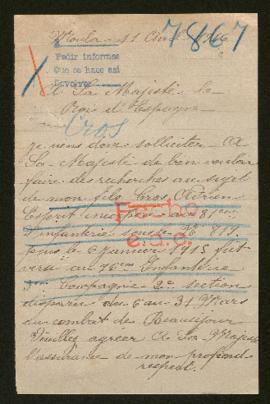 7867
Pedir informes
Que se hace asi
Devolver
A Sa Majesté le
Roi d'Espagne
Cros
je viens donc solliciter A
Sa Majesté de bien vouloir
faire des recherches au sujet
de mon fils Cros Adrien
Ficha
d'infanterie sous le No
e.d.c.
le 6 janvier 1915 fut
versé au Infanterie
Compagnie 2e section
disparu du 6 au 31 Mars
au combat de Beauséjour
Veuillez agréer A Sa Majesté
l'assurance de mon profond
respect.